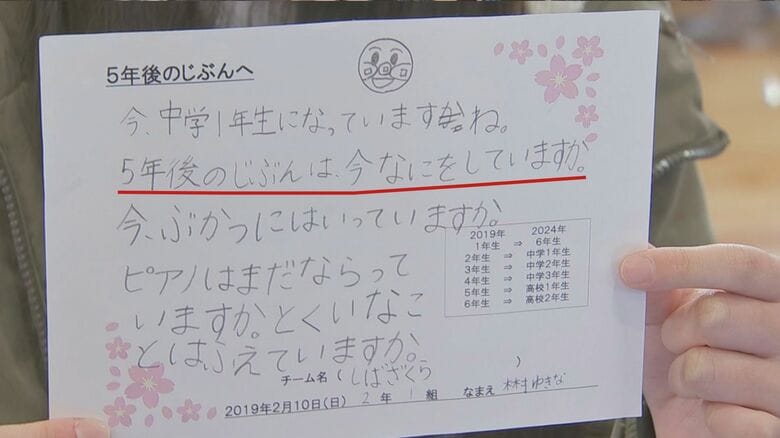 5年後のじぶんへ
今、中学1年生になっていますね。
5年後のじぶんは、今なにをしていますか。
今、ぶかつにはいっていますか。
ピアノはまだならって
いますか。とくいなこ
とはふえていますか。
2019年 2024年
1年生 ⇒ 6年生
2年生 ⇒ 中学1年生
3年生 ⇒ 中学2年生
4年生 ⇒ 中学3年生
5年生 ⇒ 高校1年生
6年生 ⇒ 高校2年生
チーム名(しばざくら)
2019年2月10日(日) 2年 1組 なまえ ゆきな